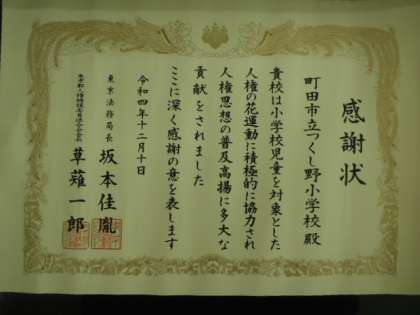 感謝状
町田市立つくし野小学校 殿
貴校は小学校児童を対象とした
人権の花運動に積極的に協力され
人権思想の普及高揚に多大な
貢献をされました
ここに深く感謝の意を表します
令和四年十二月十日
東京法務局長 坂本佳胤
草薙一郎